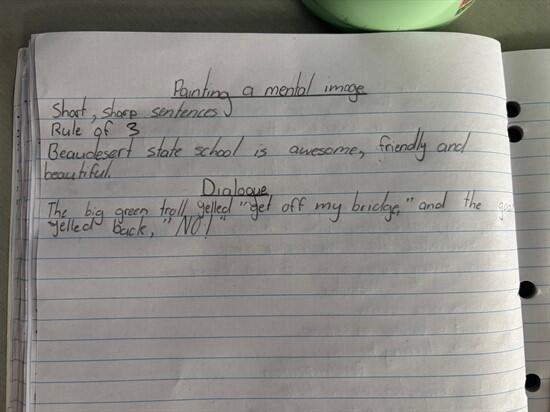 Painting a mental image
Short, sharp sentences
Rule of 3
Beaudesert state school is awesome, friendly and
beautiful.
Dialogue
The big green troll yelled "get off my bridge," and the
yelled back, "NO!"